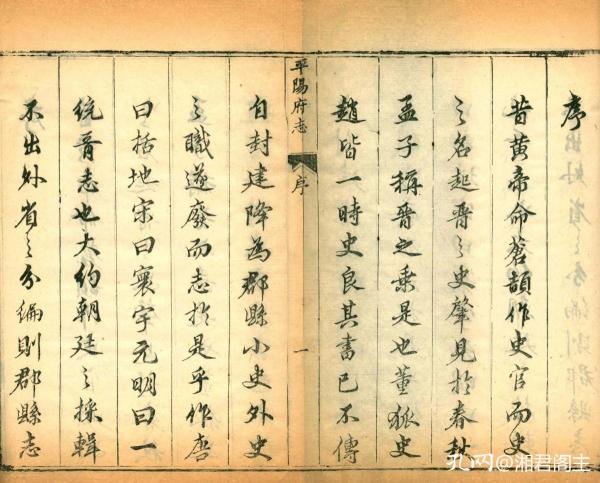 序
昔黃帝命蒼頡作史官而史
之名起晉之史肇見於春秋
孟子稱晉之乘是也董狐史
趙皆一時史良其書已不傳
平陽府志
序
一
自封建降為郡縣小史外史
之職遂廢而志於是乎作唐
曰括地宋曰寰宇元明曰一
統晉志也大約朝廷之採輯
不出外省之分編則郡縣志
孔网@湘君阁主